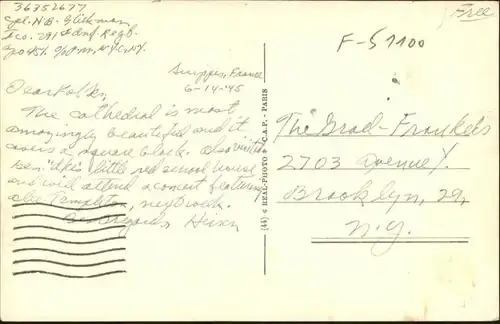 36352677
Cpl. N.B. Glickman
I Co. 291st Inf. Regt.
Apo 451 c/o P.M., N.Y.C., N.Y.
Free
F-51100
Suippes, France
6-14-45
Dear Folks,
The cathedral is most
amazingly beautiful and it
covers a square block. Also visited
Gen. Ike's little red school house
and will attend a concert featuring
Alec Templeton,
Best Regards
The Grad-Frankels
2703 Avenue Y.
Brooklyn, 29,
N.Y.
(44) © REAL-PHOTO C.A.P. - PARIS